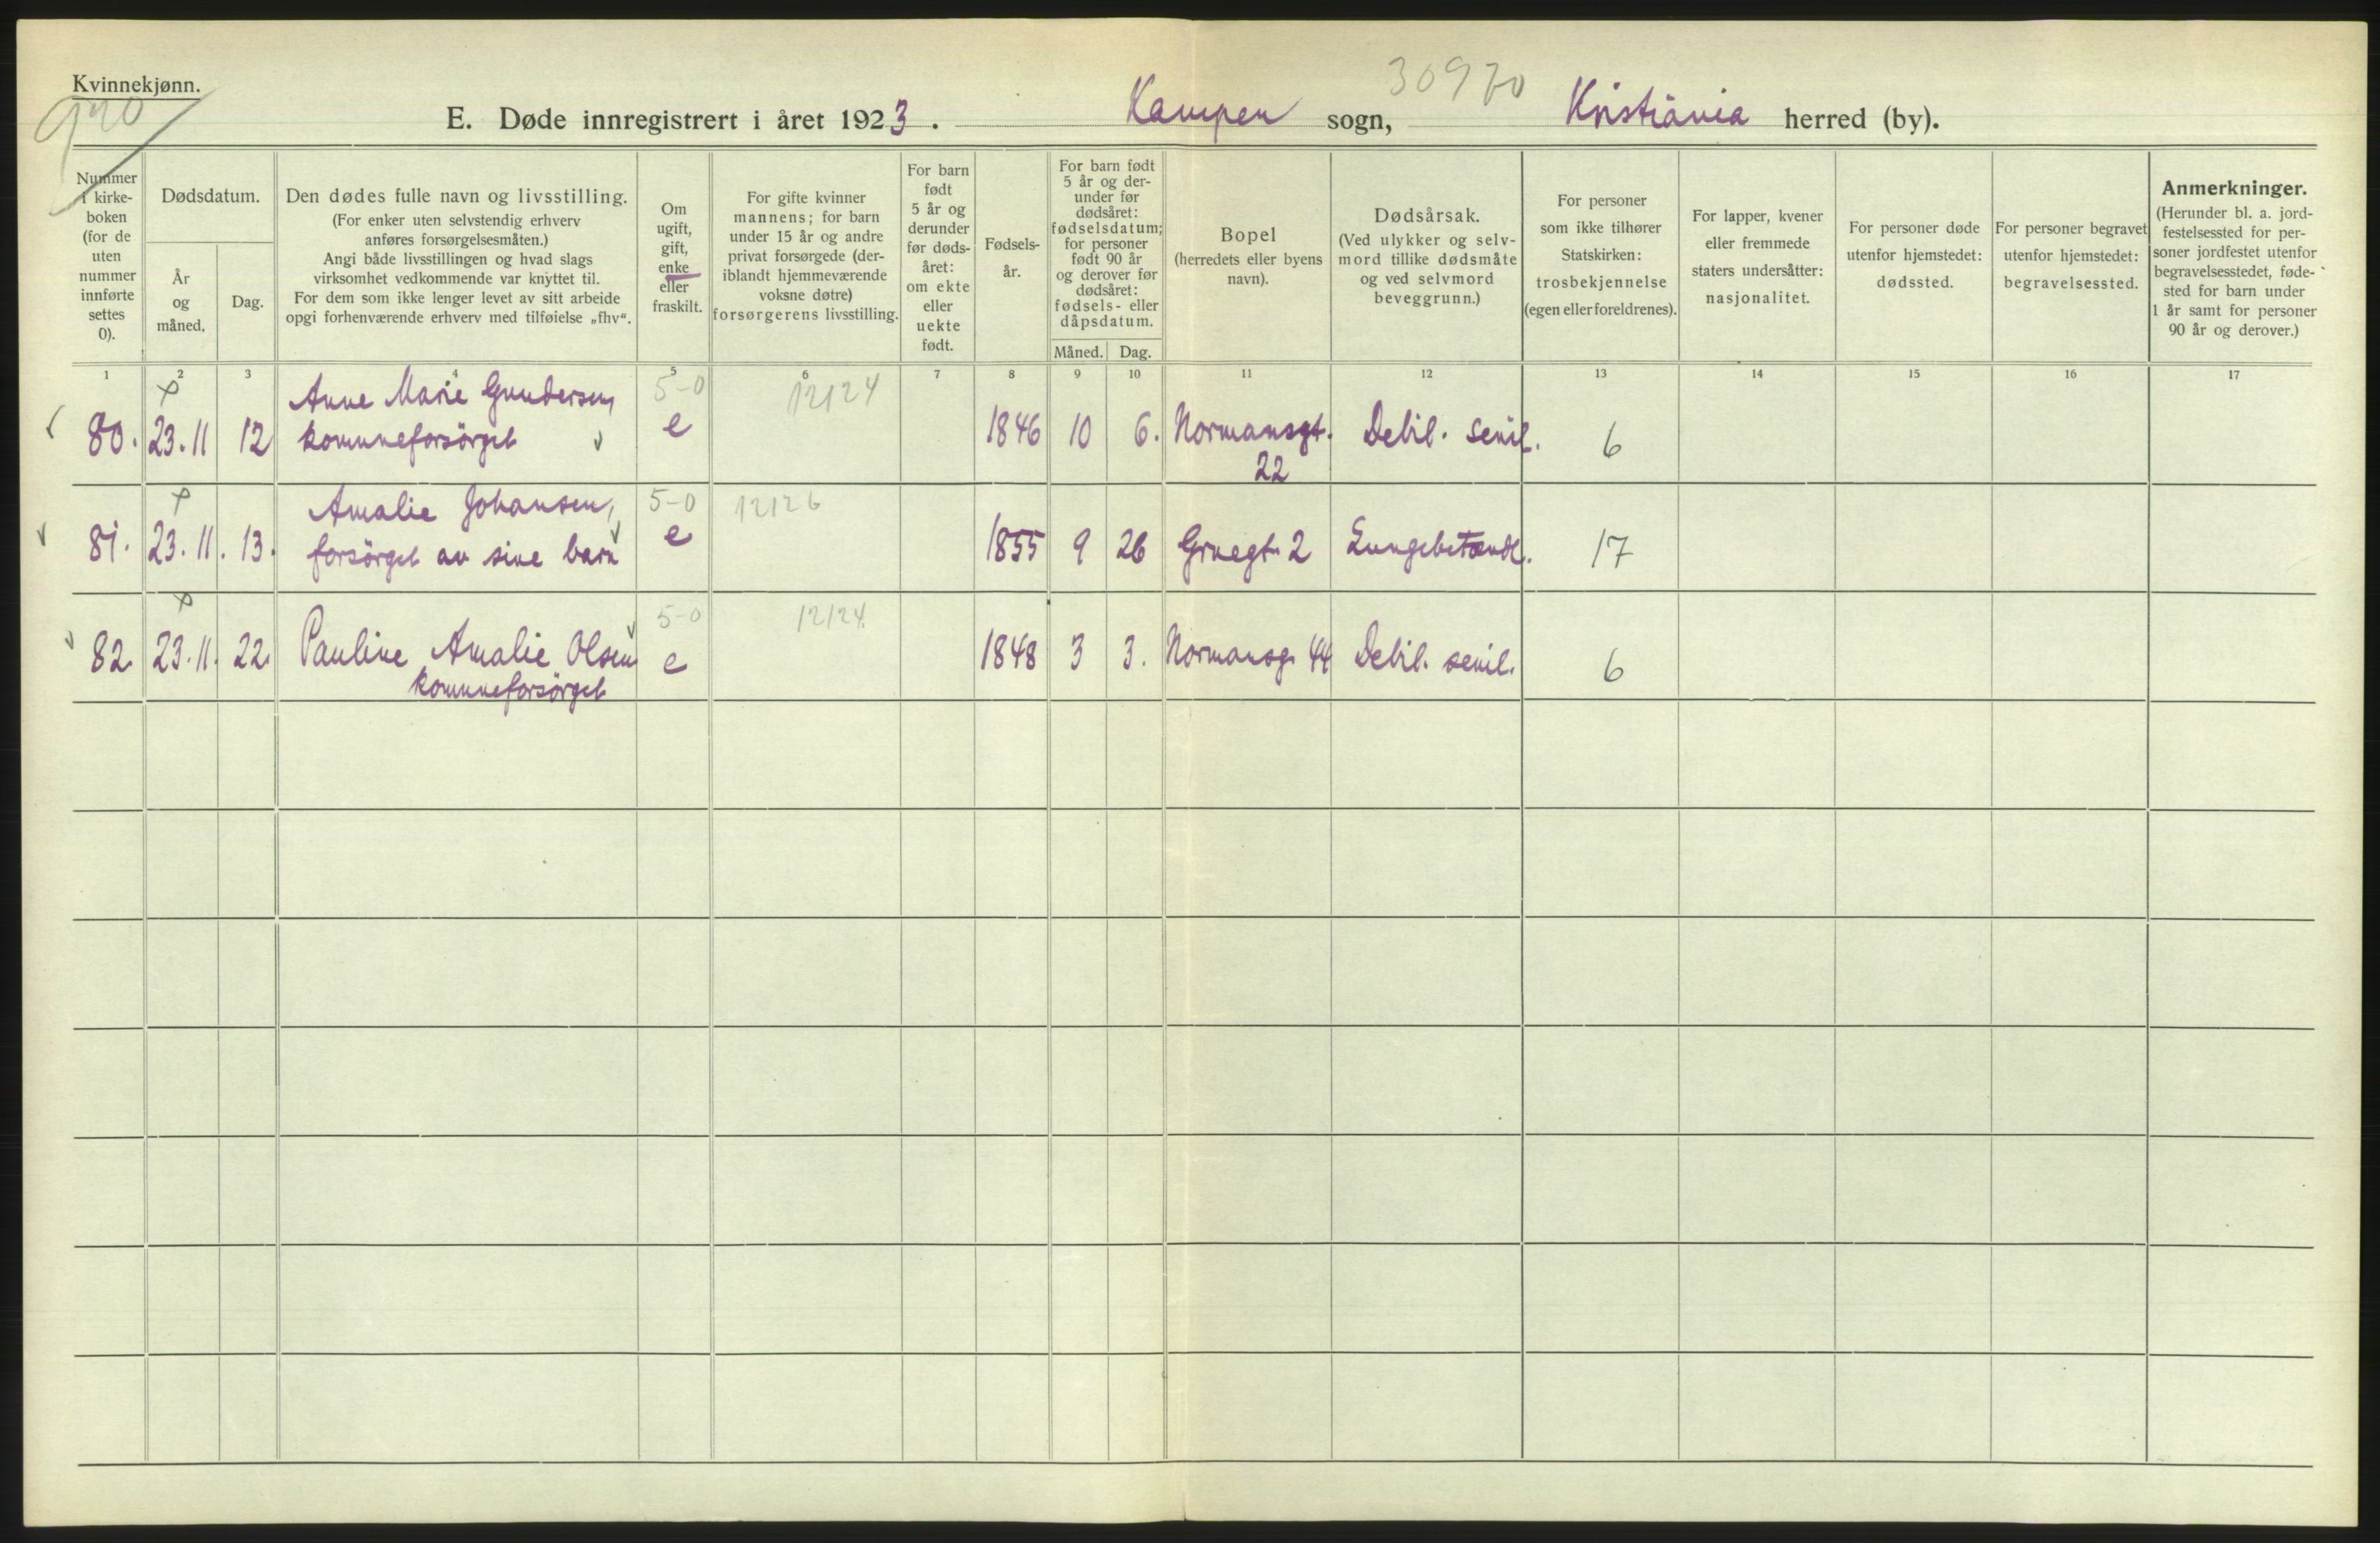 Kvinnekjønn.
920
E. Døde innregistrert i året 1923. Kampen sogn, Kristiania herred (by).
30970
Nummer i kirkeboken (for de uten nummer innførte settes 0).
Dødsdatum.
År og måned.
Dag.
Den dødes fulle navn og livsstilling.
(For enker uten selvstendig erhverv
anføres forsørgelsesmåten.)
Angi både livsstillingen og hvad slags
virksomhet vedkommende var knyttet til.
For dem som ikke lenger levet av sitt arbeide
opgi forhenværende erhverv med tilføielse „fhv“.
Om ugift, gift, enke eller fraskilt.
For gifte kvinner
mannens; for barn
under 15 år og andre
privat forsørgede (der-
iblandt hjemmeværende
voksne døtre)
forsørgerens livsstilling.
For barn
født
5 år og
derunder
før døds-
året:
om ekte
eller
uekte
født.
Fødsels-
år.
For barn født
5 år og der-
under før
dødsåret:
fødselsdatum;
for personer
født 90 år
og derover før
dødsåret:
fødsels- eller
dåpsdatum.
Måned. Dag.
Bopel
(herredets eller byens
navn).
Dødsårsak.
(Ved ulykker og selv-
mord tillike dødsmåte
og ved selvmord
beveggrunn.)
For personer
som ikke tilhører
Statskirken:
trosbekjennelse
(egen eller foreldrenes).
For lapper, kvener
eller fremmede
staters undersåtter:
nasjonalitet.
For personer døde
utenfor hjemstedet:
dødssted.
For personer begravet
utenfor hjemstedet:
begravelsessted.
Anmerkninger.
(Herunder bl. a. jord-
festelsessted for per-
soner jordfestet utenfor
begravelsesstedet, føde-
sted for barn under
1 år samt for personer
90 år og derover.)
1 2 3 4 5 6 7 8 9 10 11 12 13 14 15 16 17
Anne Marie Gundersen, 5-0 12124
80. 23.11 12 kommuneforsörget e 1846 10 6. Normansgt. Debil. senil. 6
22
Amalie Johansen, 5-0 12126
81. 23.11. 13. forsörget av sine barn e 1855 9 26 Gruegt. 2 Lungebetændl. 17
5-0 12124
82. 23.11. 22. Pauline Amalie Olsen e 1848 3 3. Normansg. 44 Debil. senil. 6
kommuneforsörget